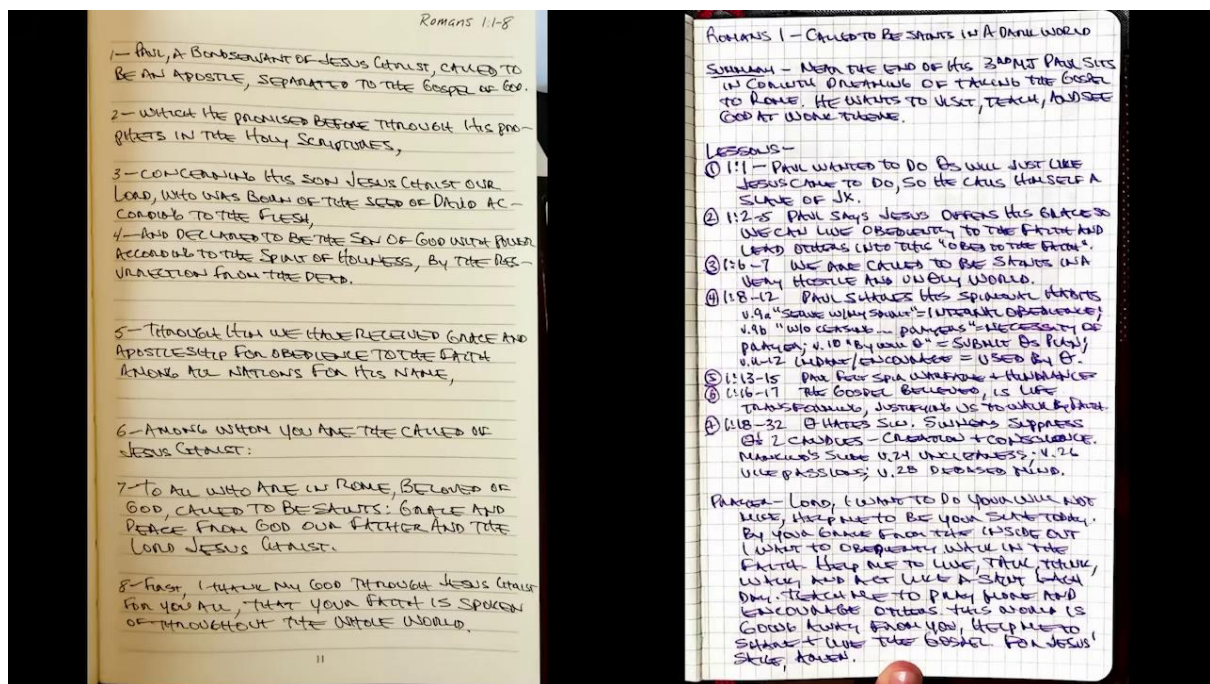 Romans 1:1-8
1— PAUL, A BONDSERVANT OF JESUS CHRIST, CALLED TO
BE AN APOSTLE, SEPARATED TO THE GOSPEL OF GOD.
2— WHICH HE PROMISED BEFORE THROUGH HIS PRO-
PHETS IN THE HOLY SCRIPTURES,
3— CONCERNING HIS SON JESUS CHRIST OUR
LORD, WHO WAS BORN OF THE SEED OF DAVID AC-
CORDING TO THE FLESH,
4— AND DECLARED TO BE THE SON OF GOD WITH POWER
ACCORDING TO THE SPIRIT OF HOLINESS, BY THE RES-
URRECTION FROM THE DEAD.
5— THROUGH HIM WE HAVE RECEIVED GRACE AND
APOSTLESHIP FOR OBEDIENCE TO THE FAITH
AMONG ALL NATIONS FOR HIS NAME,
6— AMONG WHOM YOU ARE THE CALLED OF
JESUS CHRIST:
7— TO ALL WHO ARE IN ROME, BELOVED OF
GOD, CALLED TO BE SAINTS: GRACE AND
PEACE FROM GOD OUR FATHER AND THE
LORD JESUS CHRIST.
8— FIRST, I THANK MY GOD THROUGH JESUS CHRIST
FOR YOU ALL, THAT YOUR FAITH IS SPOKEN
OF THROUGHOUT THE WHOLE WORLD.
11
ROMANS 1 — CALLED TO BE SAINTS IN A DARK WORLD
SUMMARY — NEAR THE END OF HIS 3RD MJ PAUL SITS
IN CORINTH DREAMING OF TAKING THE GOSPEL
TO ROME. HE WANTS TO VISIT, TEACH, AND SEE
GOD AT WORK THERE.
LESSONS—
① 1:1 — PAUL WANTED TO DO Θs WILL JUST LIKE
JESUS CAME TO DO, SO HE CALLS HIMSELF A
SLAVE OF JX.
② 1:2-5 PAUL SAYS JESUS OFFERS HIS GRACE SO
WE CAN LIVE OBEDIENTLY TO THE FAITH AND
LEAD OTHERS INTO THIS "OBED TO THE FAITH".
③ 1:6-7 WE ARE CALLED TO BE SAINTS IN A
VERY HOSTILE AND UNGODLY WORLD.
④ 1:8-12 PAUL SHARES HIS SPIRITUAL HABITS
v.9a "SERVE W/MY SPIRIT" = INTERNAL OBEDIENCE;
v.9b "W/O CEASING... PRAYERS" = NECESSITY OF
PRAYER; v.10 "BY WILL Θ" = SUBMIT Θs PLAN;
v.11-12 IMPART/ENCOURAGE = USED BY Θ.
⑤ 1:13-15 PAUL FELT SPIR WARFARE + HINDRANCE
⑥ 1:16-17 THE GOSPEL BELIEVED, IS LIFE
TRANSFORMING, JUSTIFYING US TO WALK BY FAITH.
⑦ 1:18-32 Θ HATES SIN. SINNERS SUPPRESS
Θs 2 CANDLES — CREATION + CONSCIENCE.
MANKIND'S SLIDE V.24 UNCLEANESS; V.26
VILE PASSIONS; V.28 DEBASED MIND.
PRAYER — LORD, I WANT TO DO YOUR WILL NOT
MINE, HELP ME TO BE YOUR SLAVE TODAY.
BY YOUR GRACE FROM THE INSIDE OUT
I WANT TO OBEDIENTLY WALK IN THE
FAITH. HELP ME TO LIVE, TALK, THINK,
WALK, AND ACT LIKE A SAINT EACH
DAY. TEACH ME TO PRAY MORE AND
ENCOURAGE OTHERS. THIS WORLD IS
GOING AWAY FROM YOU, HELP ME TO
SHARE + LIVE THE GOSPEL FOR JESUS'
SAKE, AMEN.